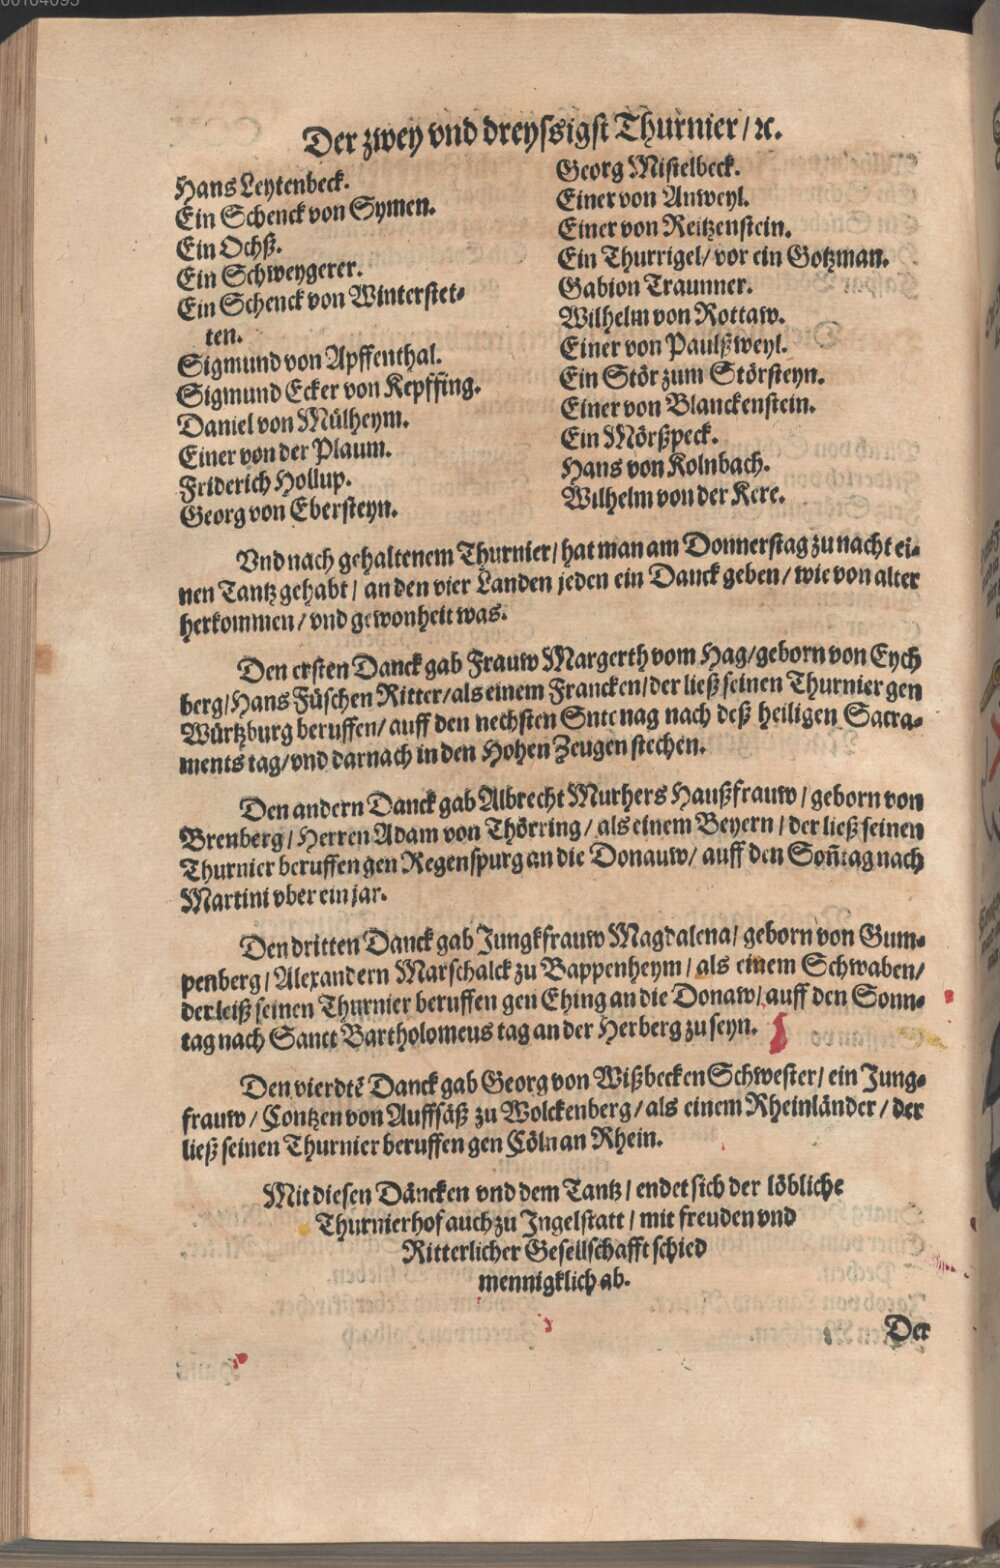 00104095
Der zwey vnd dreyssigst Thurnier/ ꝛc.
Hans Leytenbeck.
Ein Schenck von Symen.
Ein Ochß.
Ein Schweygerer.
Ein Schenck von Winterstet-
ten.
Sigmund von Apffenthal.
Sigmund Ecker von Kepffing.
Daniel von Mülheym.
Einer von der Plaum.
Friderich Hollup.
Georg von Ebersteyn.
Georg Mistelbeck.
Einer von Anweyl.
Einer von Reitzenstein.
Ein Thurrigel/ vor ein Gotzman.
Gabion Traunner.
Wilhelm von Rottaw.
Einer von Paulßweyl.
Ein Stör zum Störsteyn.
Einer von Blanckenstein.
Ein Mörßpeck.
Hans von Kolnbach.
Wilhelm von der Kere.
Vnd nach gehaltenem Thurnier/ hat man am Donnerstag zu nacht ei-
nen Tantz gehabt/ an den vier Landen jeden ein Danck geben/ wie von alter
herkommen/ vnd gewonheit was.
Den ersten Danck gab Frauw Margerth vom Hag/ geborn von Eych
berg/ Hans Füschen Ritter/ als einem Francken/ der ließ seinen Thurnier gen
Würtzburg beruffen/ auff den nechsten Sntenag nach deß heiligen Sacra-
ments tag/ vnd darnach in den Hohen Zeugen stechen.
Den andern Danck gab Albrecht Murhers Haußfrauw/ geborn von
Brenberg/ Herren Adam von Thörring/ als einem Beyern/ der ließ seinen
Thurnier beruffen gen Regenspurg an die Donauw/ auff den Soñtag nach
Martini vber ein jar.
Den dritten Danck gab Jungkfrauw Magdalena/ geborn von Gum-
penberg/ Alexandern Marschalck zu Bappenheym/ als einem Schwaben/
der leiß seinen Thurnier beruffen gen Ehing an die Donaw/ auff den Sonn-
tag nach Sanct Bartholomeus tag an der Herberg zu seyn.
Den vierdtẽ Danck gab Georg von Wißbecken Schwester/ ein Jung-
frauw/ Contzen von Auffsäß zu Wolckenberg/ als einem Rheinländer/ der
ließ seinen Thurnier beruffen gen Cöln an Rhein.
Mit diesen Däncken vnd dem Tantz/ endet sich der löbliche
Thurnierhof auch zu Ingelstatt/ mit freuden vnd
Ritterlicher Gesellschafft schied
mennigklich ab.
Der